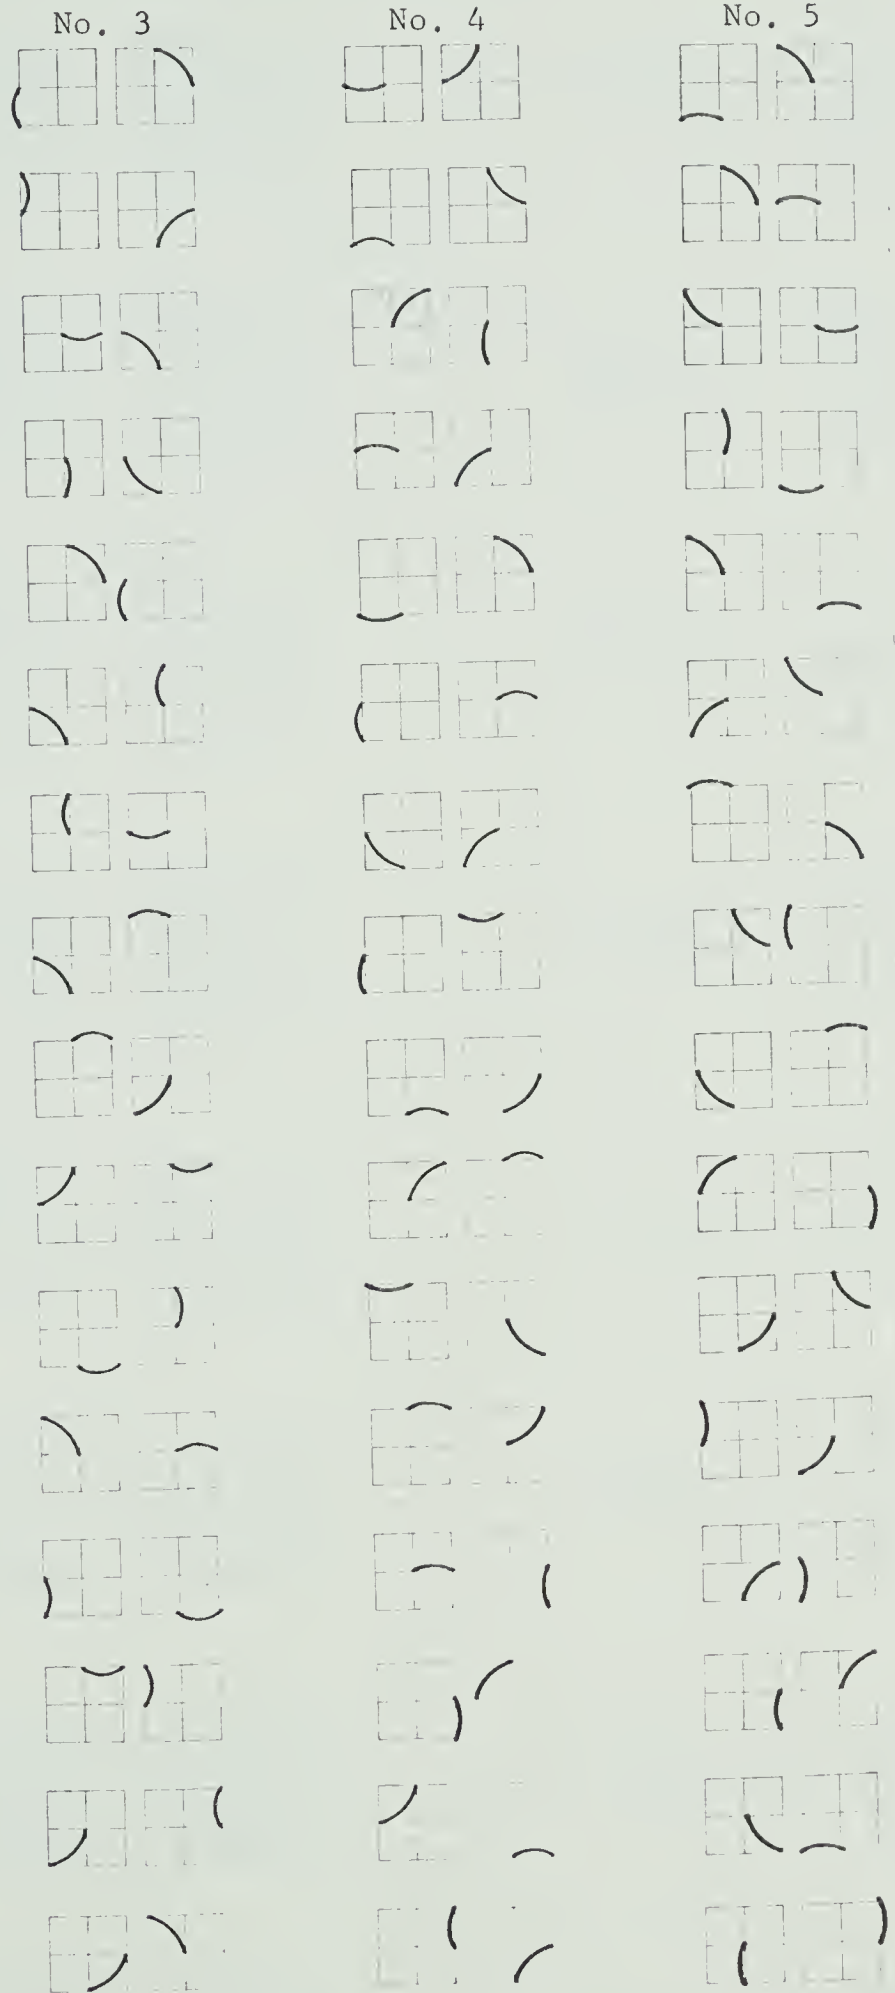 No. 3 No. 4 No. 5